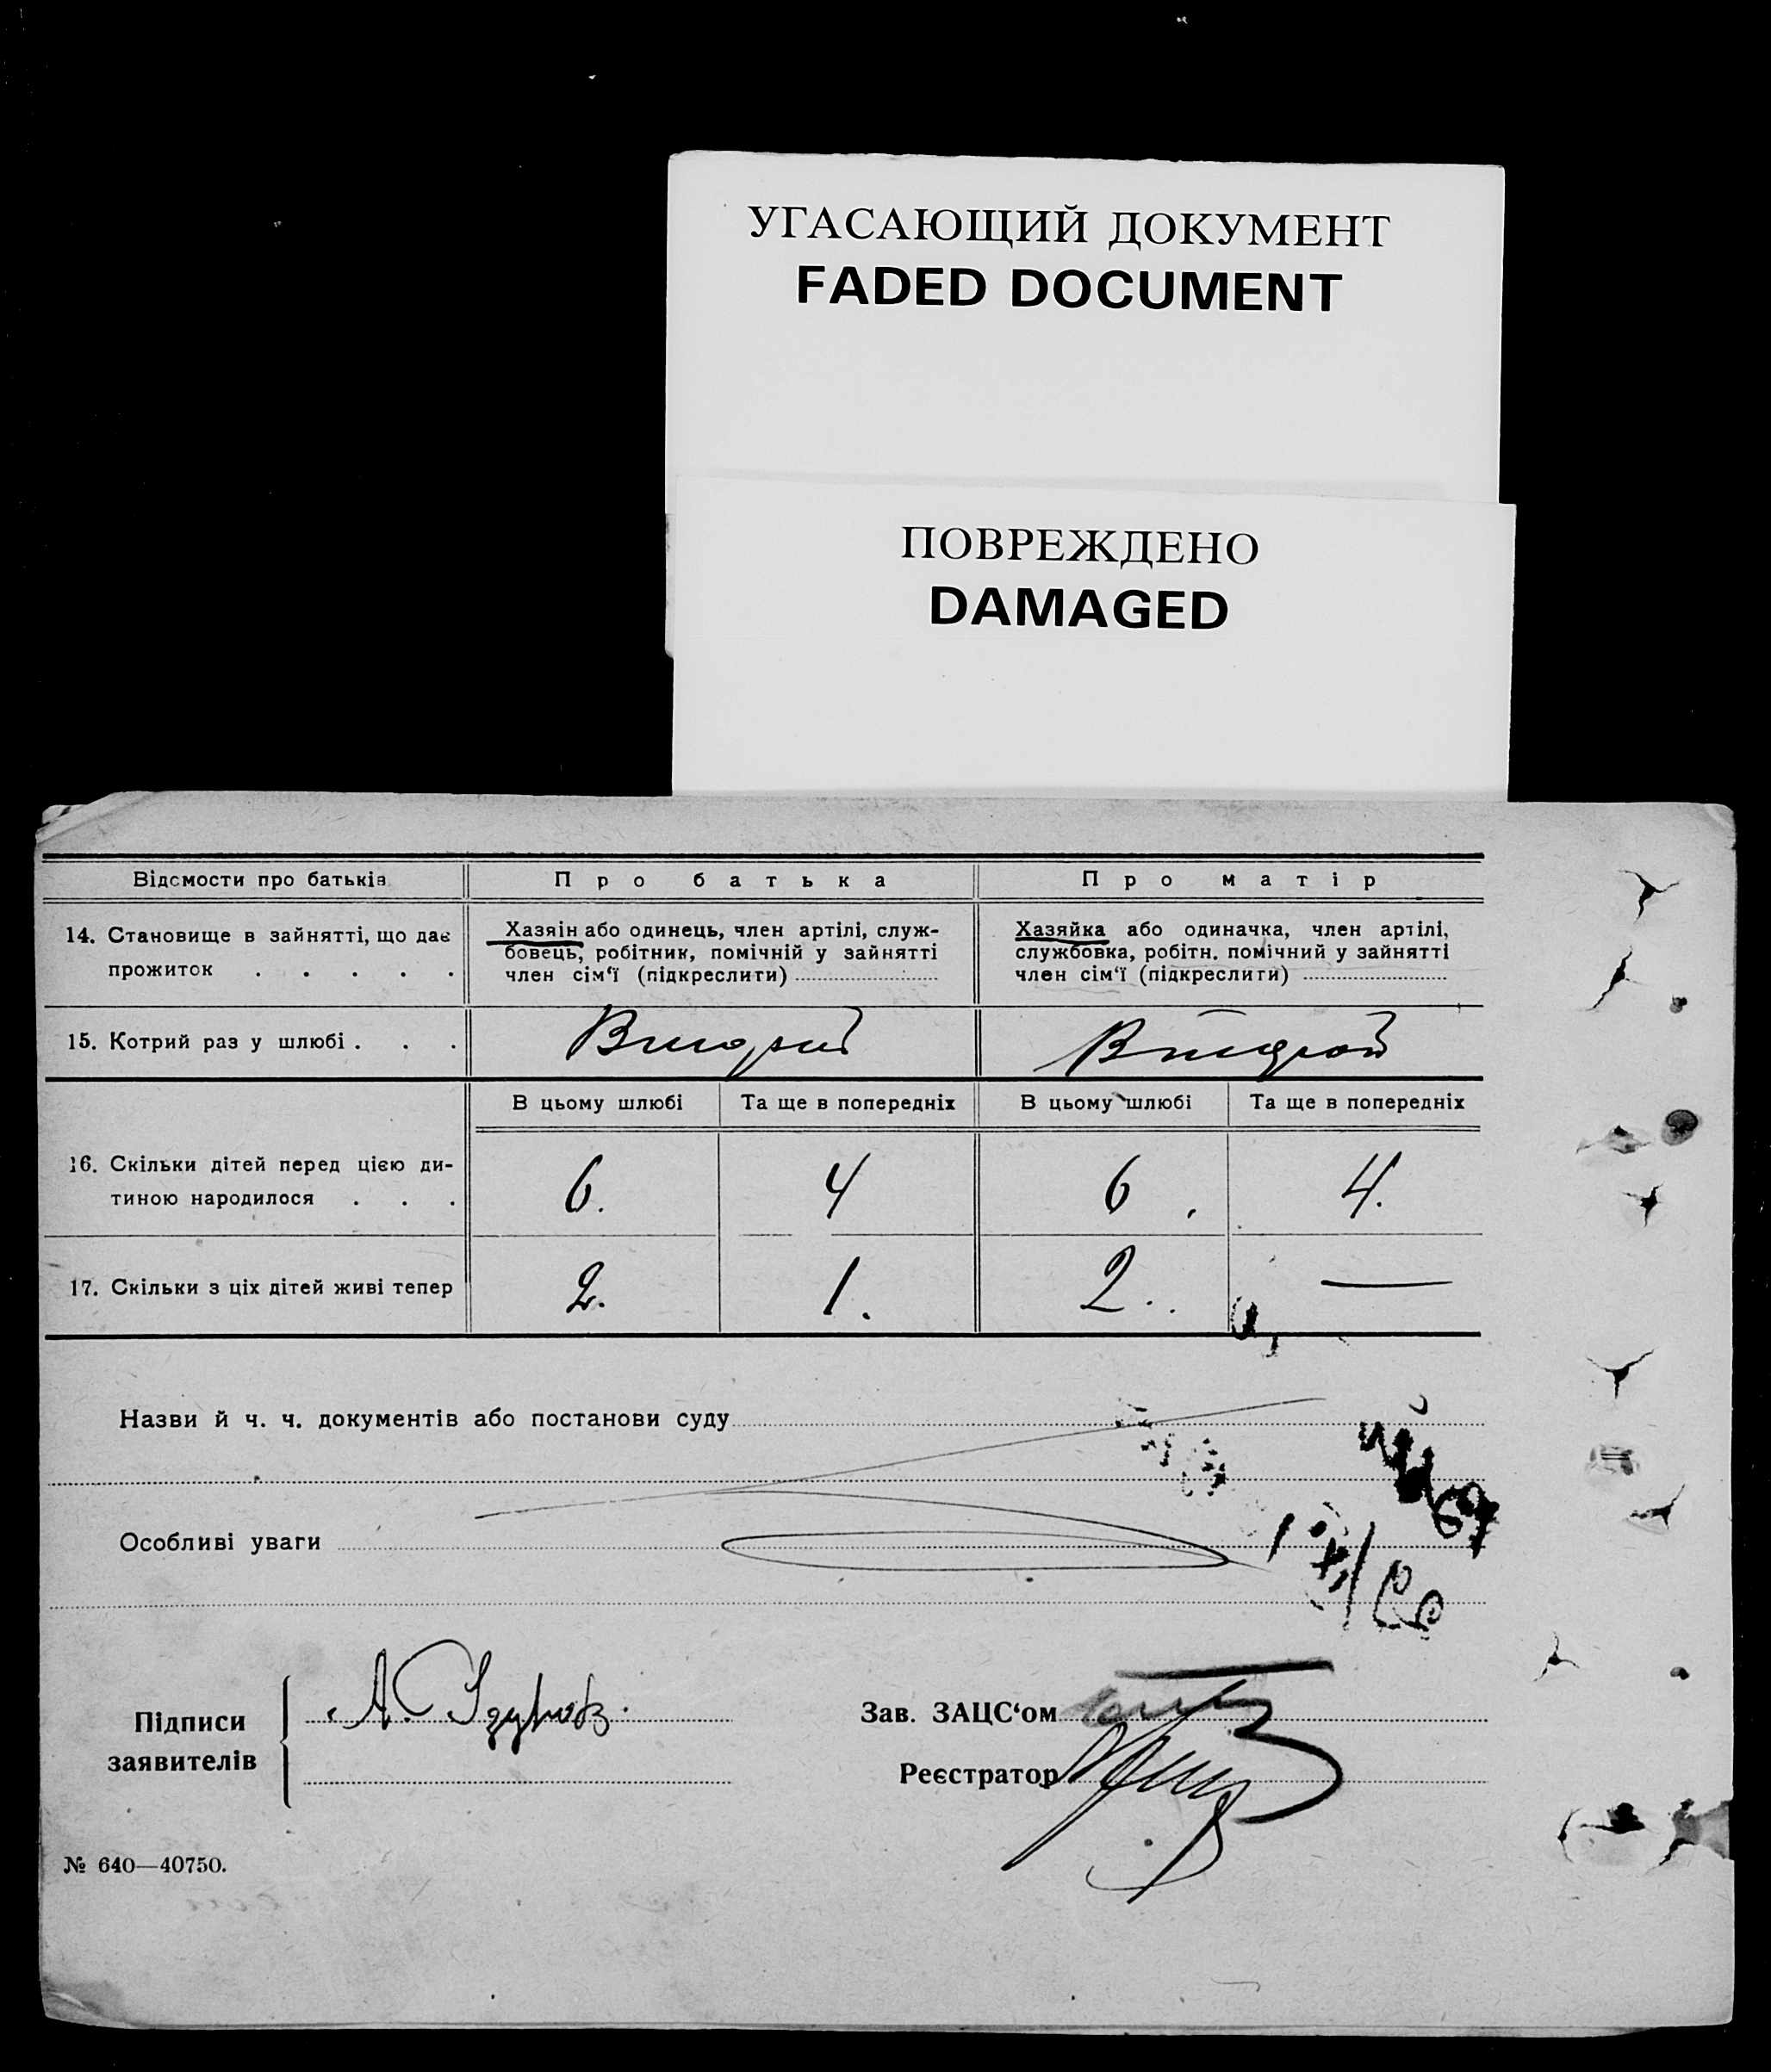 УГАСАЮЩИЙ ДОКУМЕНТ
FADED DOCUMENT
ПОВРЕЖДЕНО
DAMAGED
Відомости про батьків
Про батька
Про матір
14. Становище в зайнятті, що дає
прожиток . . . . .
Хазяін або одинець, член артілі, служ-
бовець, робітник, помічній у зайнятті
член сім‘ї (підкреслити)
Хазяйка або одиначка, член артілі,
службовка, робітн. помічний у зайнятті
член сім‘ї (підкреслити)
15. Котрий раз у шлюбі . . .
Второй
Второй
В цьому шлюбі
Та ще в попередніх
В цьому шлюбі
Та ще в попередніх
16. Скільки дітей перед цією ди-
тиною народилося . . .
6.
4
6.
4.
17. Скільки з ціх дітей живі тепер
2.
1.
2..
—
Назви й ч. ч. документів або постанови суду
Особливі уваги
Підписи
заявителів
Зав. ЗАЦС‘ом
Реєстратор
№ 640—40750.